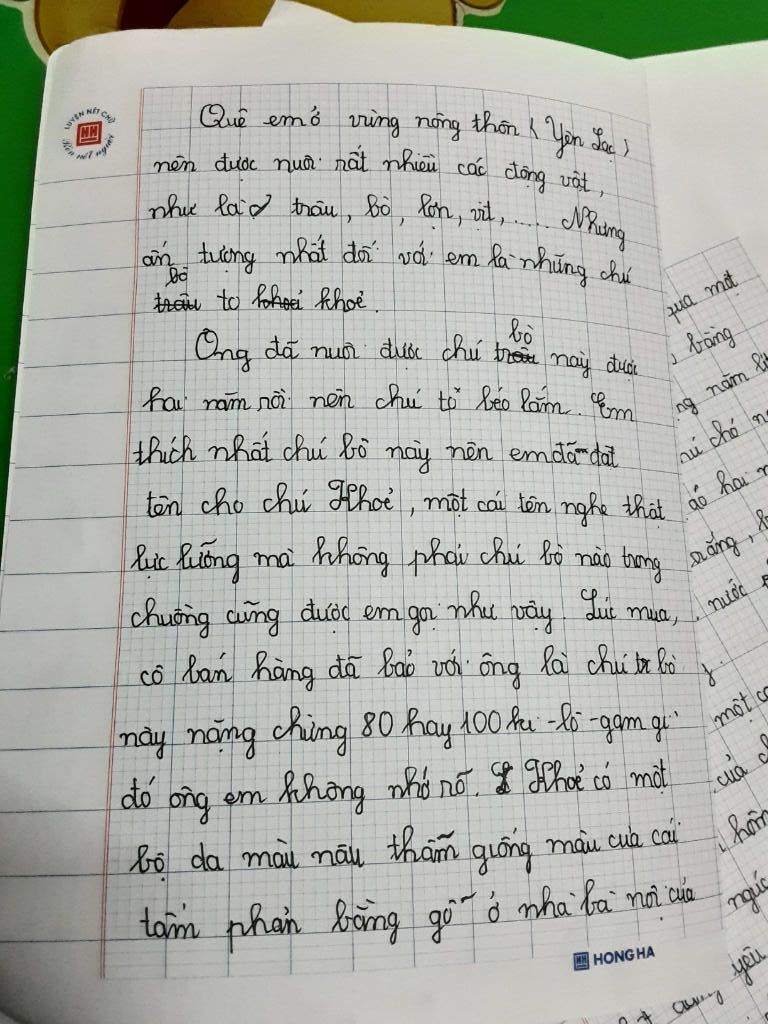 LUYỆN NÉT CHỮ
HH
Rèn nết người
Quê em ở vùng nông thôn (Yên Lạc)
nên được nuôi rất nhiều các động vật,
như là trâu, bò, lợn, vịt, ..... Nhưng
ấn tượng nhất đối với em là những chú
bò
trâu to khoẻ khoẻ.
bò
Ông đã nuôi được chú trâu này được
hai năm rồi nên chú to béo lắm. Em
thích nhất chú bò này nên em đã đặt
tên cho chú Khoẻ, một cái tên nghe thật
lực lưỡng mà không phải chú bò nào trong
chuồng cũng được em gọi như vậy. Lúc mua,
cô bán hàng đã bảo với ông là chú tr bò
này nặng chừng 80 hay 100 ki-lô-gam gì
đó ông em không nhớ rõ. Khoẻ có một
bộ da màu nâu thẫm giống màu của cái
tấm phản bằng gỗ ở nhà bà nội của
HH HONG HA
qua một
, bằng
ng năm
chú chó
áo hai
răng,
nước
một
của
ngúc
yêu